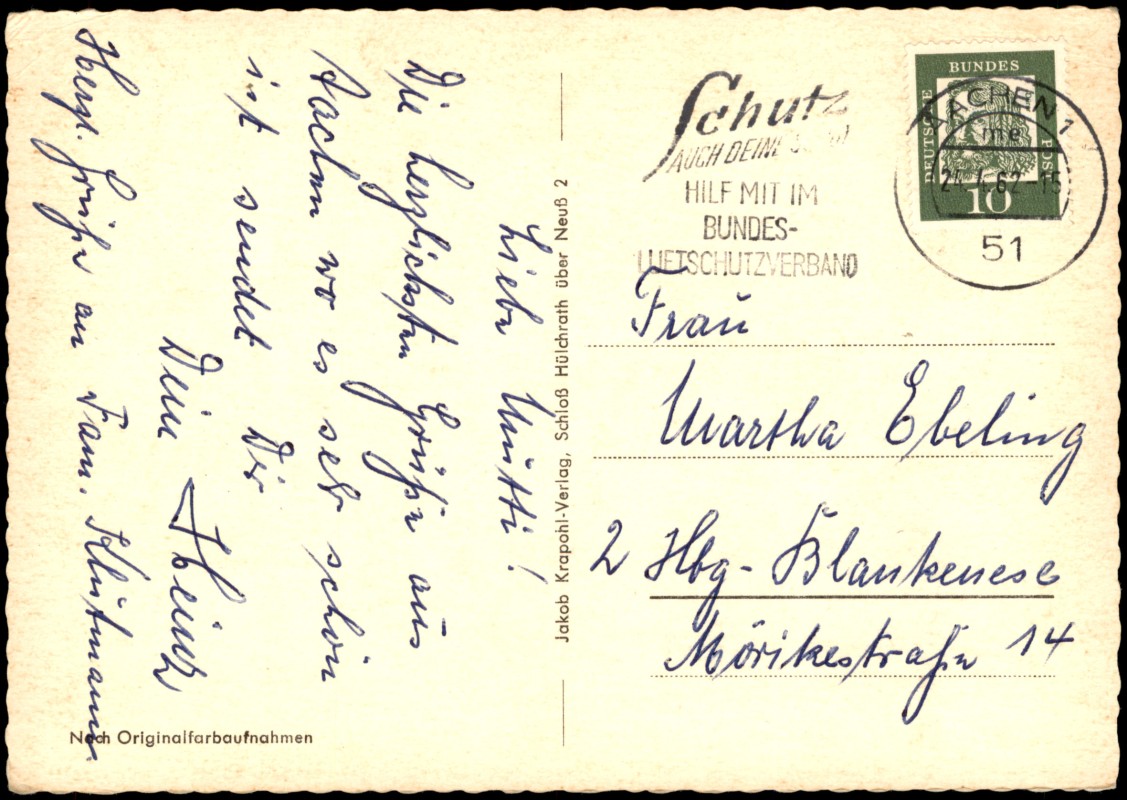 Liebe Mutti!
Die herzlichsten Grüße aus
Aachen wo es sehr schön
ist sendet Dir
Dein Heinz
Herzl. Grüße an Fam. Klütmann.
Nach Originalfarbaufnahmen
Jakob Krapohl-Verlag, Schloß Hülchrath über Neuß 2
Schutz
AUCH DEINE
HILF MIT IM
BUNDES-
LUFTSCHUTZVERBAND
DEUTSCHE
BUNDES
POST
10
AACHEN 1
me
62-15
51
Frau
Martha Ebeling
2 Hbg-Blankenese
Mörikestraße 14